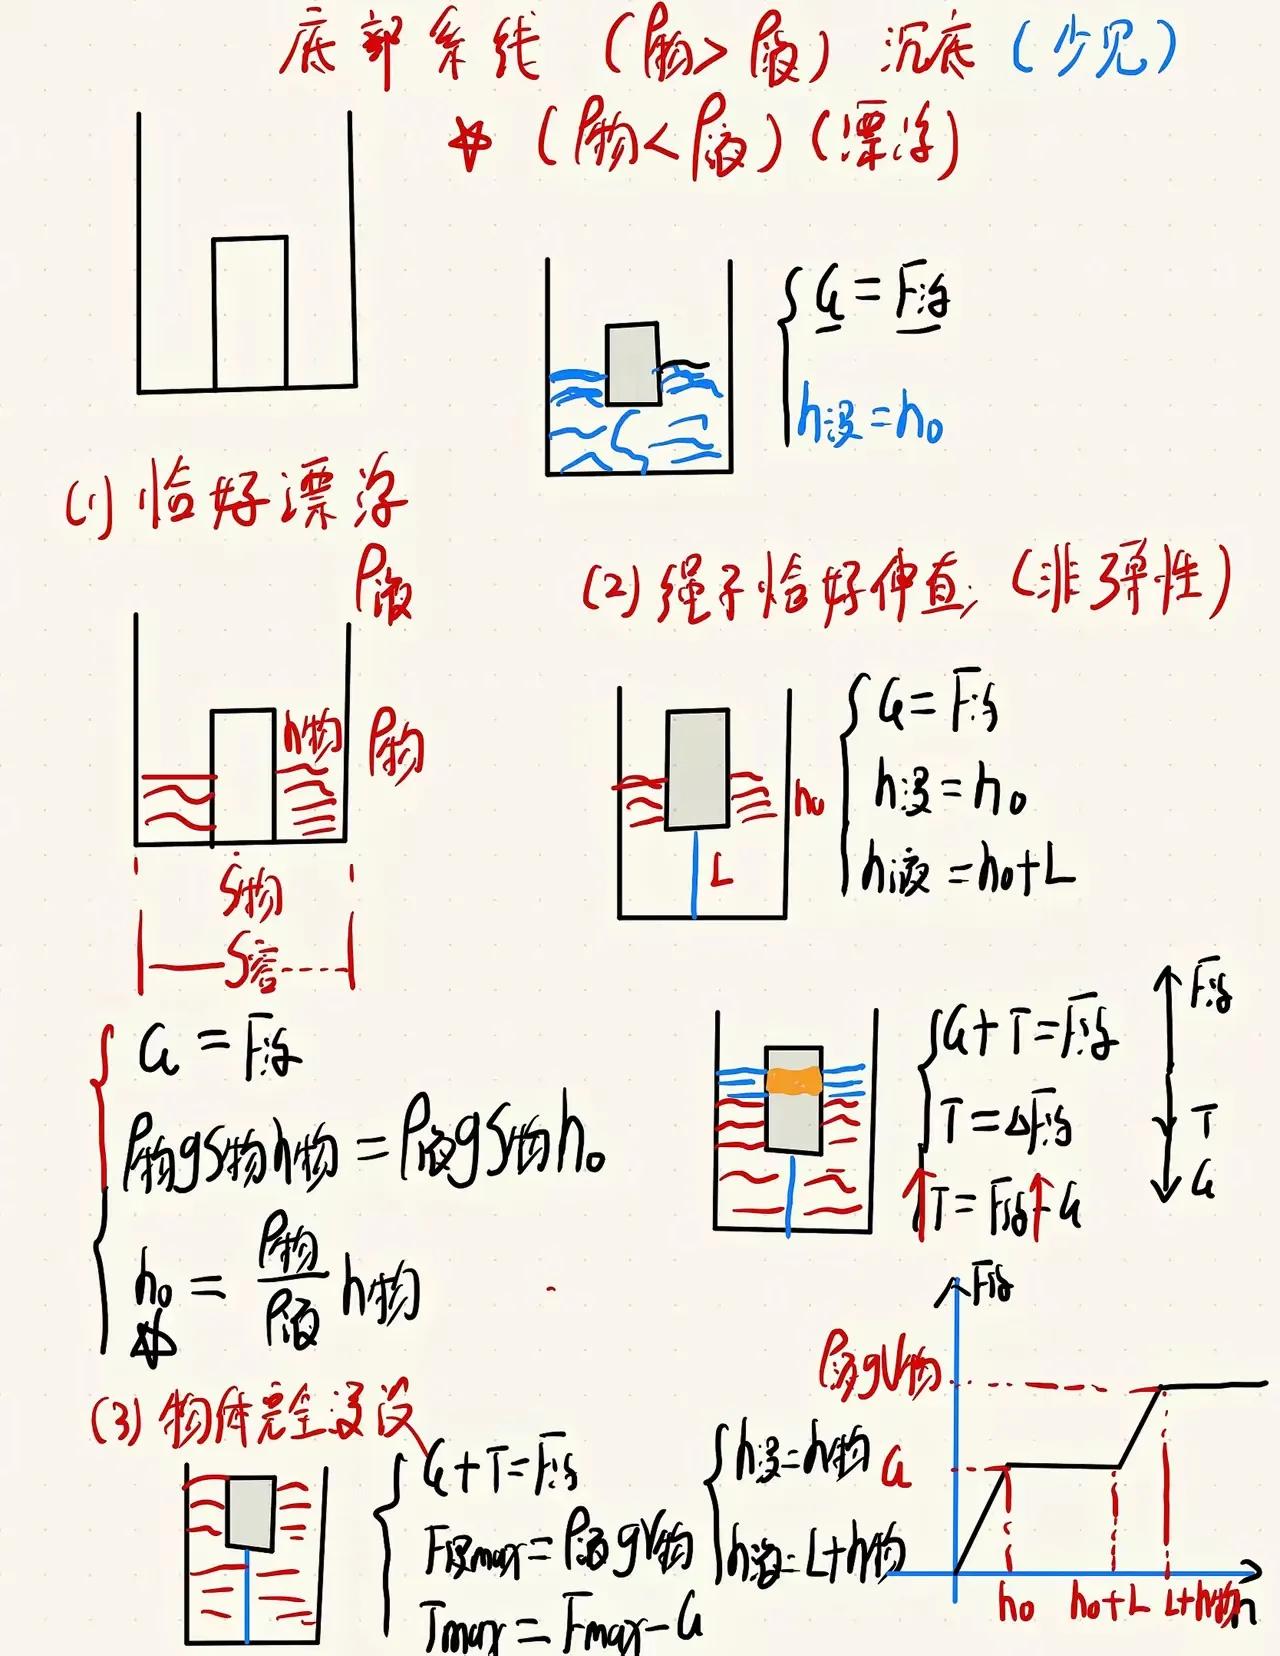 底部系线 (ρ物>ρ液) 沉底 (少见)
☆ (ρ物<ρ液) (漂浮)
G = F浮
h没 = h₀
(1) 恰好漂浮
ρ液
h物
ρ物
S物
S容
G = F浮
ρ物gS物h物 = ρ液gS物h₀
h₀ = ρ物/ρ液 h物
(2) 绳子恰好伸直 (非弹性)
h₀
L
G = F浮
h没 = h₀
h液 = h₀+L
G+T = F浮
T = ΔF浮
↑T = F浮↑-G
F浮
T
G
(3) 物体完全浸没
G+T = F浮
F浮max = ρ液gV物
Tmax = Fmax-G
h没 = h物
h液 = L+h物
F浮
ρ液gV物
G
h₀
h₀+L
L+h物
h